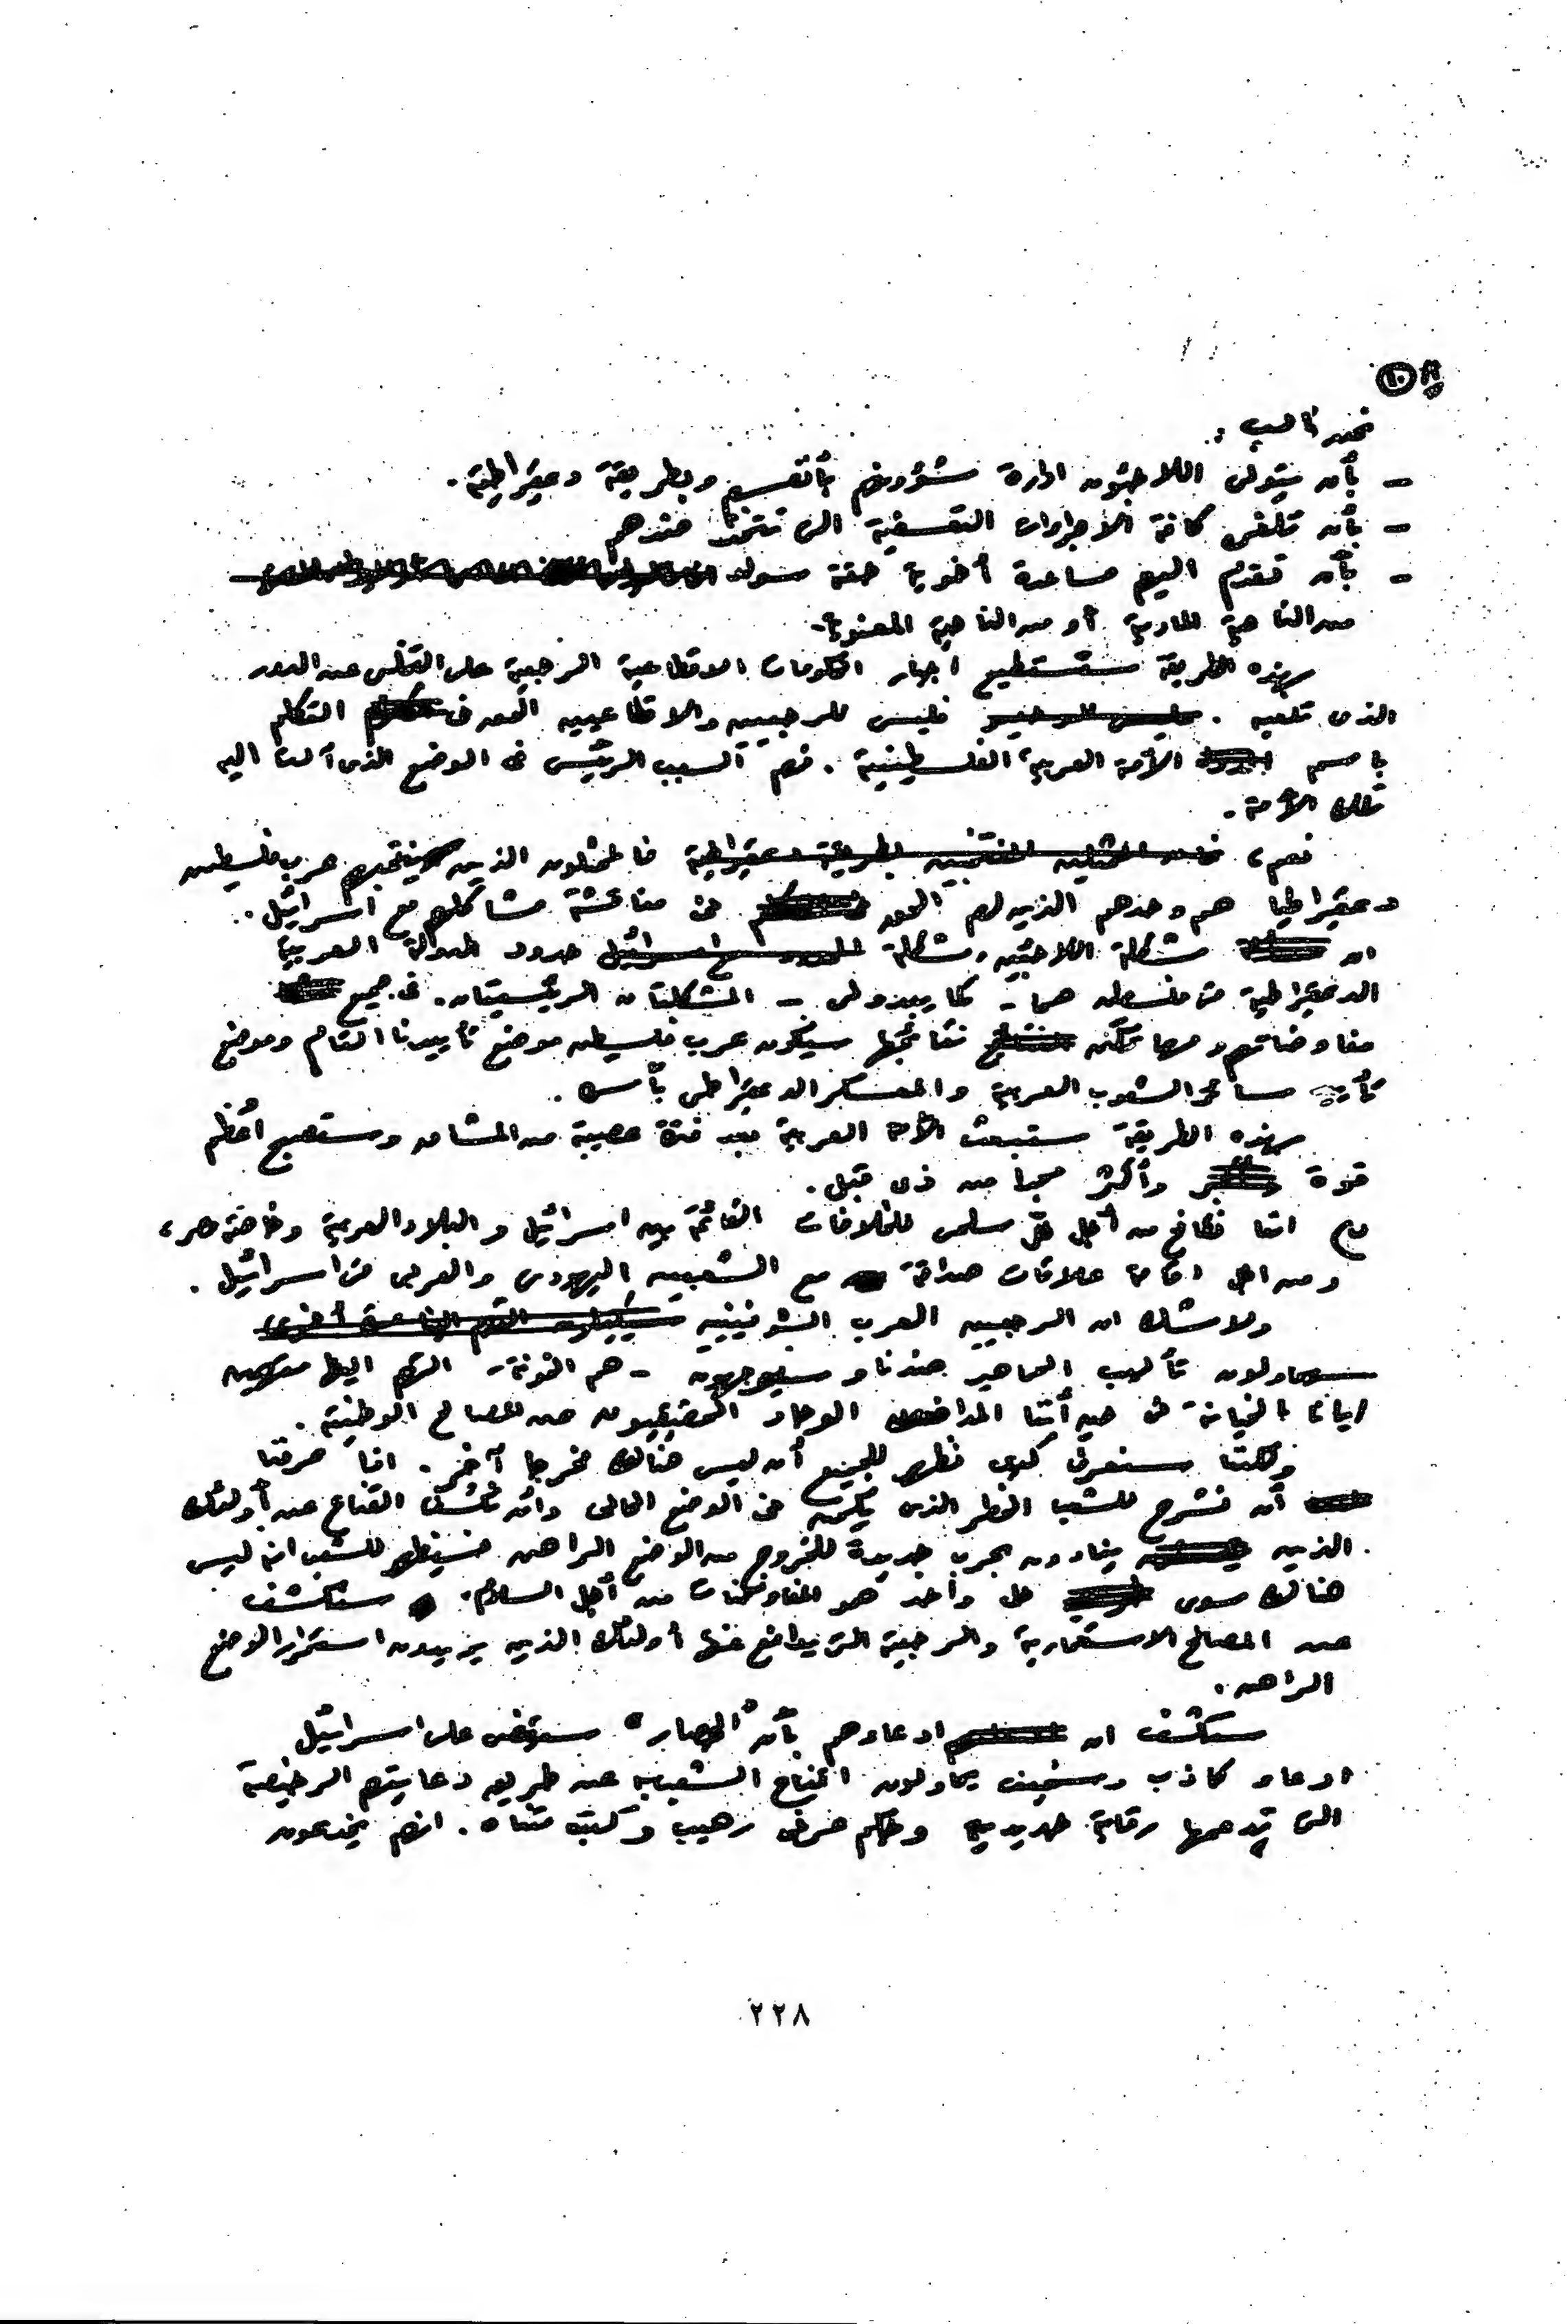 ١٠
نحن نطالب :
- بأن يتولى اللاجئون ادارة شؤونهم بأنفسهم وبطريقة دمقراطية .
- بأن تلغى كافة الاجراءات التعسفية التى تتخذ ضدهم
- بأن تقدم اليهم مساعدة أخوية حقة سواء
من الناحية المادية أو من الناحية المعنوية -
بهذه الطريقة سنستطيع اجبار الحكومات الاقطاعية الرجعية على التخلى عن الدور
الذى تلعبه . فليس للرجعيين والاقطاعيين الحق فى التكلم
باسم الأمة العربية الفلسطينية . فهم السبب الرئيسى فى الوضع الذى آلت اليه
تلك الأمة .
نعم ، فالممثلون الذين ينتخبهم عرب فلسطين
دمقراطيا هم وحدهم الذين لهم الحق فى مناقشة مشاكلهم مع اسرائيل .
ان مشكلة اللاجئين ومشكلة حدود الدولة العربية
الدمقراطية فى فلسطين هما - كما يبدو لى - المشكلتان الرئيسيتان . فى جميع
مفاوضاتهم ومهما تكن نتائجها سيكون عرب فلسطين موضع تأييدنا التام وموضع
تأييد سائر الشعوب العربية والمعسكر الدمقراطى بأسره .
بهذه الطريقة ستبعث الأمة العربية بعد فترة عصيبة من المشاق وستصبح أعظم
قوة وأكثر مجدا من ذى قبل .
اننا نكافح من أجل حل سلمى للخلافات القائمة بين اسرائيل والبلاد العربية وخاصة مصر ،
ومن اجل اقامة علاقات صداقة مع الشعبين اليهودى والعربى فى اسرائيل .
ولا شك ان الرجعيين العرب الشوفينيين
سيحاولون تأليب الجماهير ضدنا وسيوجهون - هم الخونة - التهم الينا متهمين
ايانا بالخيانة فى حين أننا المدافعون الوحاد الحقيقيون عن المصالح الوطنية .
ولكننا سنعرف كيف نظهر للجميع أن ليس هنالك مخرجا آخر . اننا عرفنا
أن نشرح للشعب الخطر الذى يكمن فى الوضع الحالى وان نكشف القناع عن أولئك
الذين ينادون بحرب جديدة للخروج من الوضع الراهن فسنظهر للشعب انه ليس
هنالك سوى حل واحد هو المفاوضات من أجل السلام . سنكشف
عن المصالح الاستعمارية والرجعية التى يدافع عنها أولئك الذين يريدون استمرار الوضع
الراهن .
سنكشف ان ادعاءهم بأن "الحصار" سيقضى على اسرائيل
ادعاء كاذب وسخيف يحاولون اقناع الشعب به عن طريق دعايتهم الرخيصة
التى تدعمها رقابة حديدية وحكم عرفى رهيب وكبت . انهم يخدعون
٢٢٨